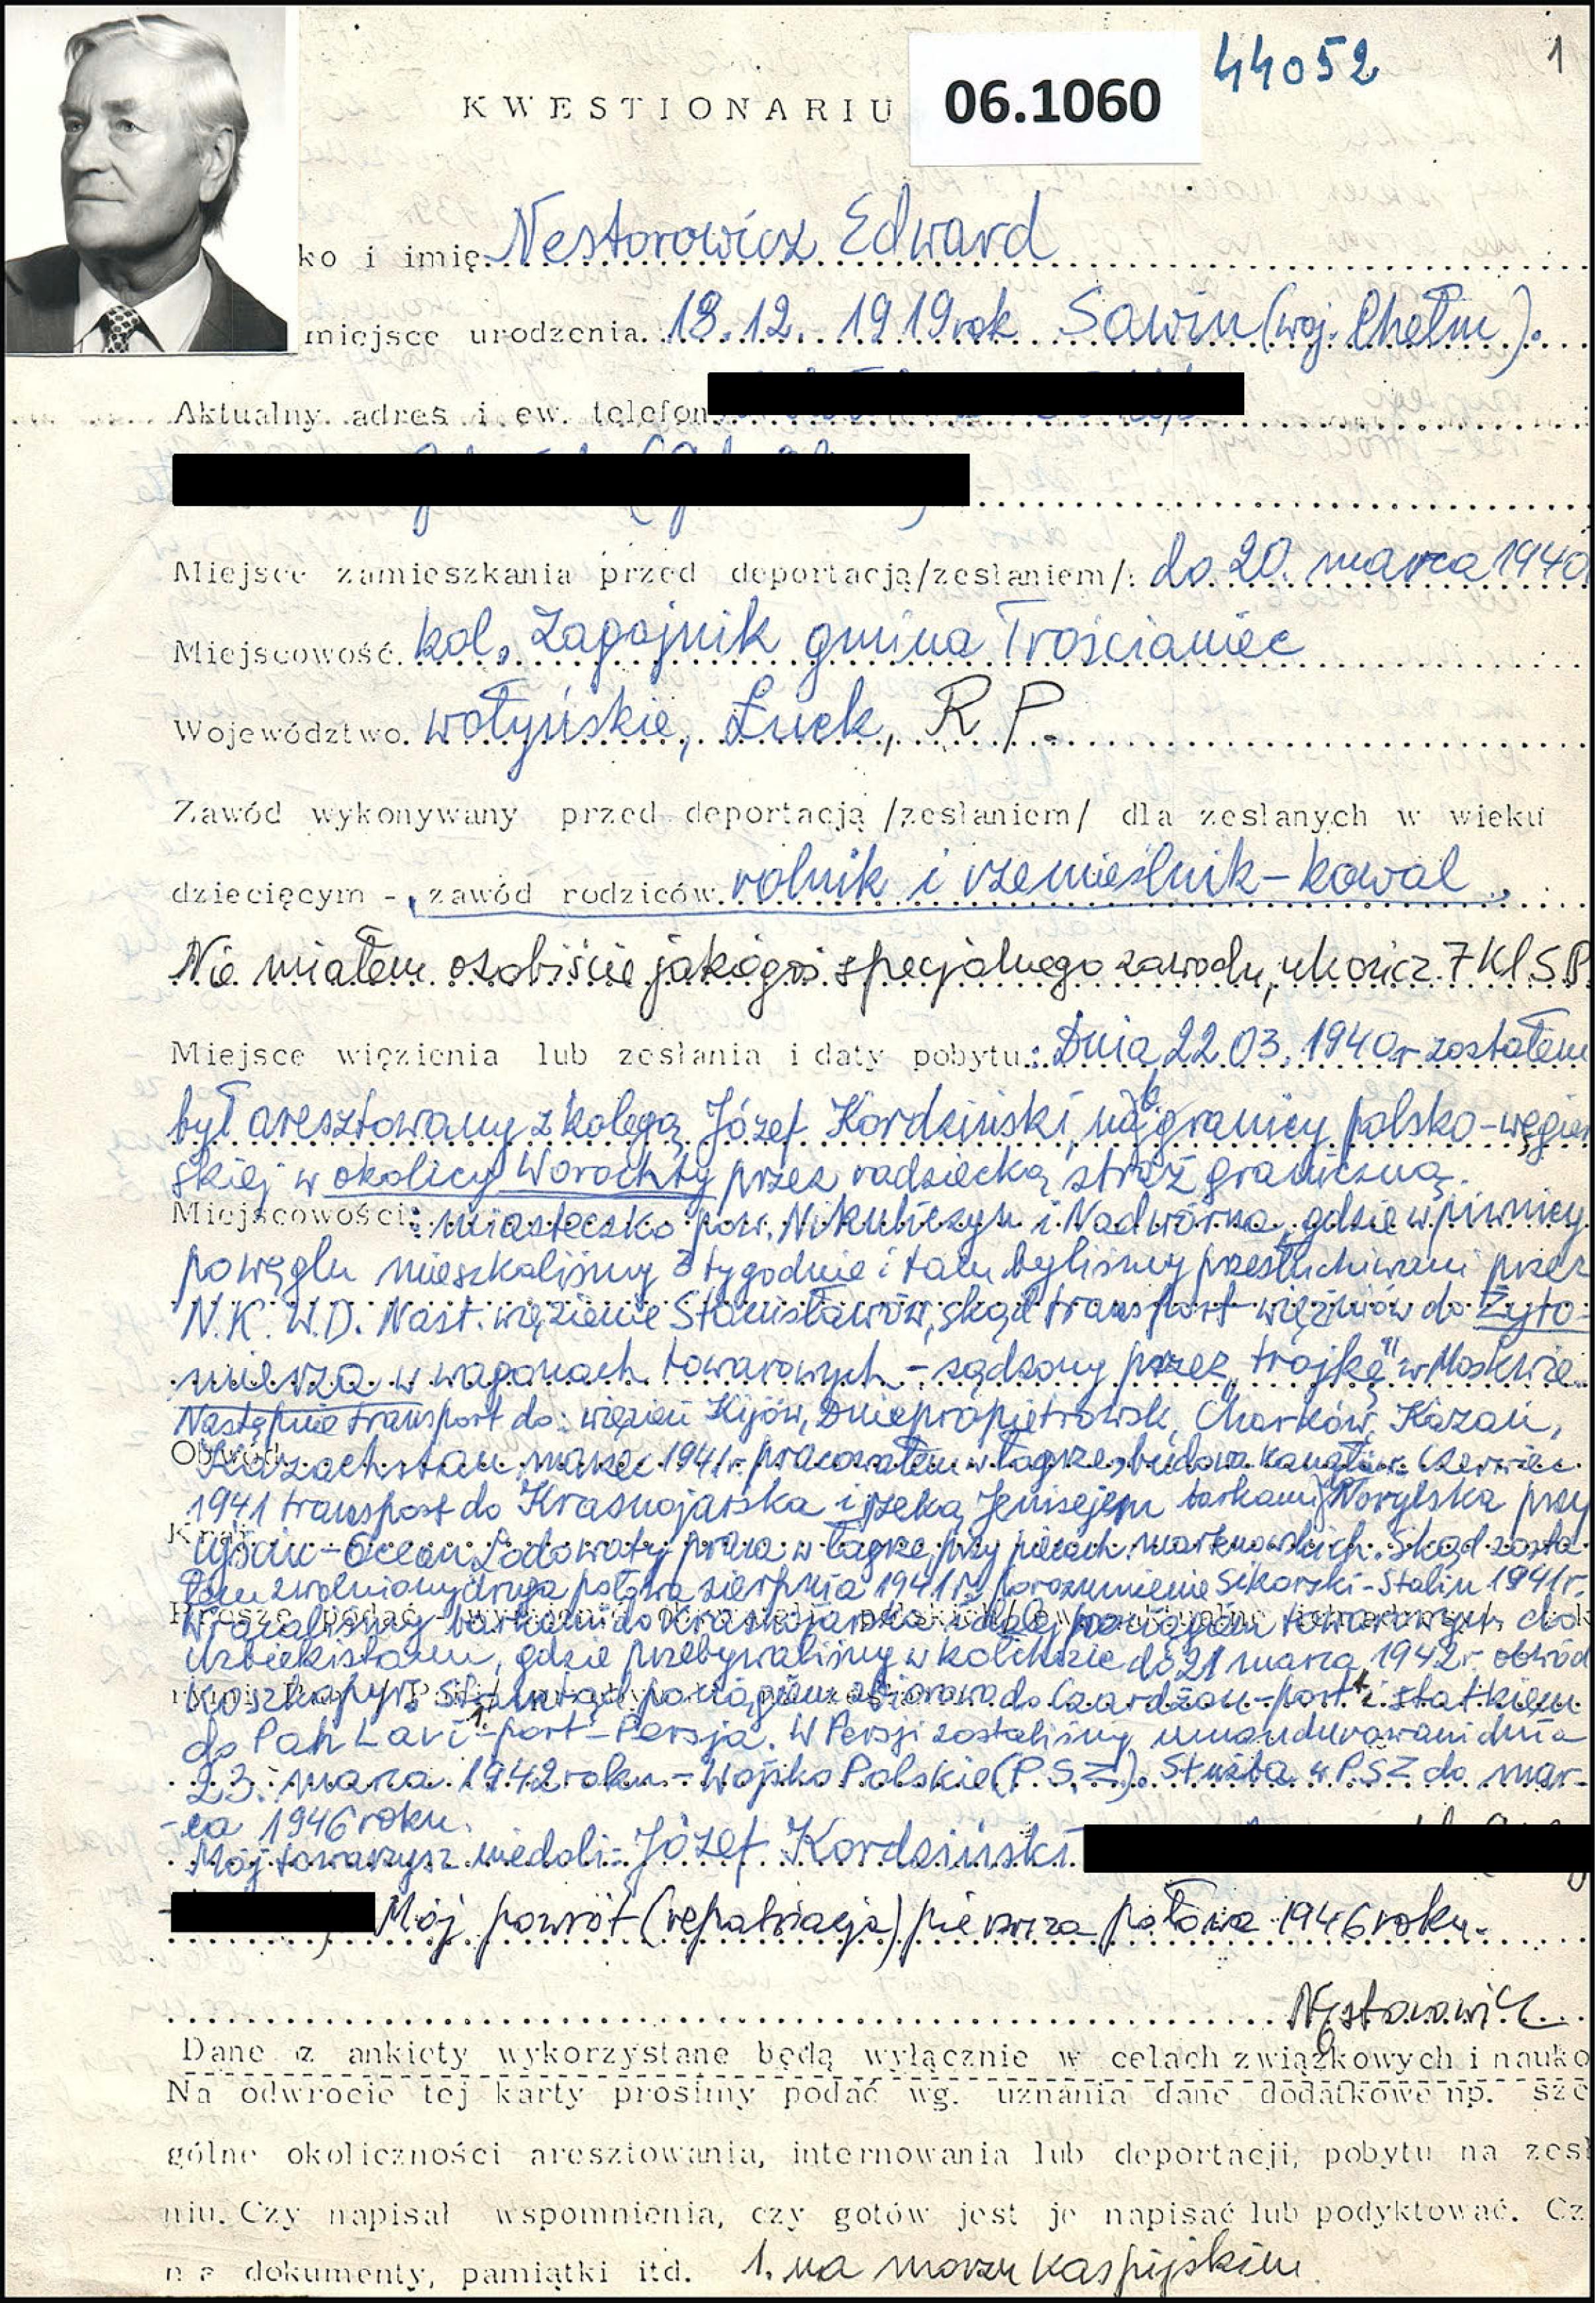 44052
1
KWESTIONARIU
06.1060
ko i imię Nestorowicz Edward
miejsce urodzenia. 18.12. 1919 rok Sawin (woj. Chełm).
Aktualny adres i ew. telefon
Miejsce zamieszkania przed deportacją/zesłaniem/: do 20. marca 1940
Miejscowość. kol. Zagajnik gmina Trościaniec
Województwo. wołyńskie, Łuck, R P.
Zawód wykonywany przed deportacją /zesłaniem/ dla zesłanych w wieku
dziecięcym - zawód rodziców rolnik i rzemieślnik-kowal
Nie miałem osobiście jakiegoś specjalnego zawodu, ukończ. 7 Kl S P
Miejsce więzienia lub zesłania i daty pobytu: Dnia 22 03. 1940r zostałem
był aresztowany z kolegą Józef Kordziński, na granicy polsko-węgier
skiej w okolicy Worochty przez radziecką straż graniczną.
Miejscowości: miasteczko pow. Mikuliczyn i Nadwórna, gdzie w piwnicy
po węglu mieszkaliśmy 3 tygodnie i tam byliśmy przesłuchiwani przez
N.K.W.D. Nast. więzienie Stanisławów, skąd transport więźniów do Żyto-
mierza w wagonach towarowych - sądzony przez "trojkę" w Moskwie.
Następnie transport do: więzień Kijów, Dniepropietrowsk, Charków, Kazań,
Kazachstan marzec 1941r. pracowałem w łagrze, budowa kanału. czerwiec
1941 transport do Krasnojarska i rzeką Jenisejem barkami do Norylska przy
ujściu-Ocean Lodowaty praca w łagrze przy piecach martenowskich. Skąd zosta-
łem zwolniony druga połowa sierpnia 1941r. porozumienie Sikorski-Stalin 1941r.
Wracaliśmy barkami do Krasnojarska i dalej pociągiem towarowym do
Uzbekistanu, gdzie przebywaliśmy w kołchozie do 21 marca 1942r obwód
stamtąd pociągiem do Czardżou-port i statkiem
do Pah Lavi-port-Persja. W Persji zostaliśmy umundurowani dnia
23. marca 1942 roku - Wojsko Polskie (P.S.Z). Służba w PSZ do mar-
-ca 1946 roku.
Mój towarzysz niedoli: Józef Kordziński
Mój powrót (repatriacja) pierwsza połowa 1946 roku.
Nestorowicz
Dane z ankiety wykorzystane będą wyłącznie w celach związkowych i nauko
Na odwrocie tej karty prosimy podać wg. uznania dane dodatkowe np. szcze
gólne okoliczności aresztowania, internowania lub deportacji, pobytu na zesł
niu. Czy napisał wspomnienia, czy gotów jest je napisać lub podyktować. Cz
na dokumenty, pamiątki itd. 1. na morzu kaspijskim